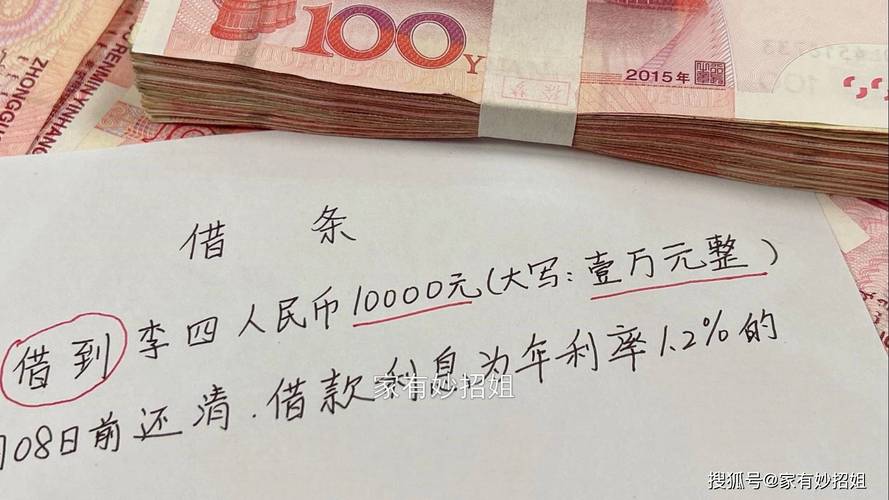 100Y
2015年
ZHONGGU
RENMINYINHANG
借 条
借到李四人民币10000元(大写:壹万元整)
08日前还清.借款利息为年利率1.2%的
家有妙招姐
搜狐号@家有妙招姐